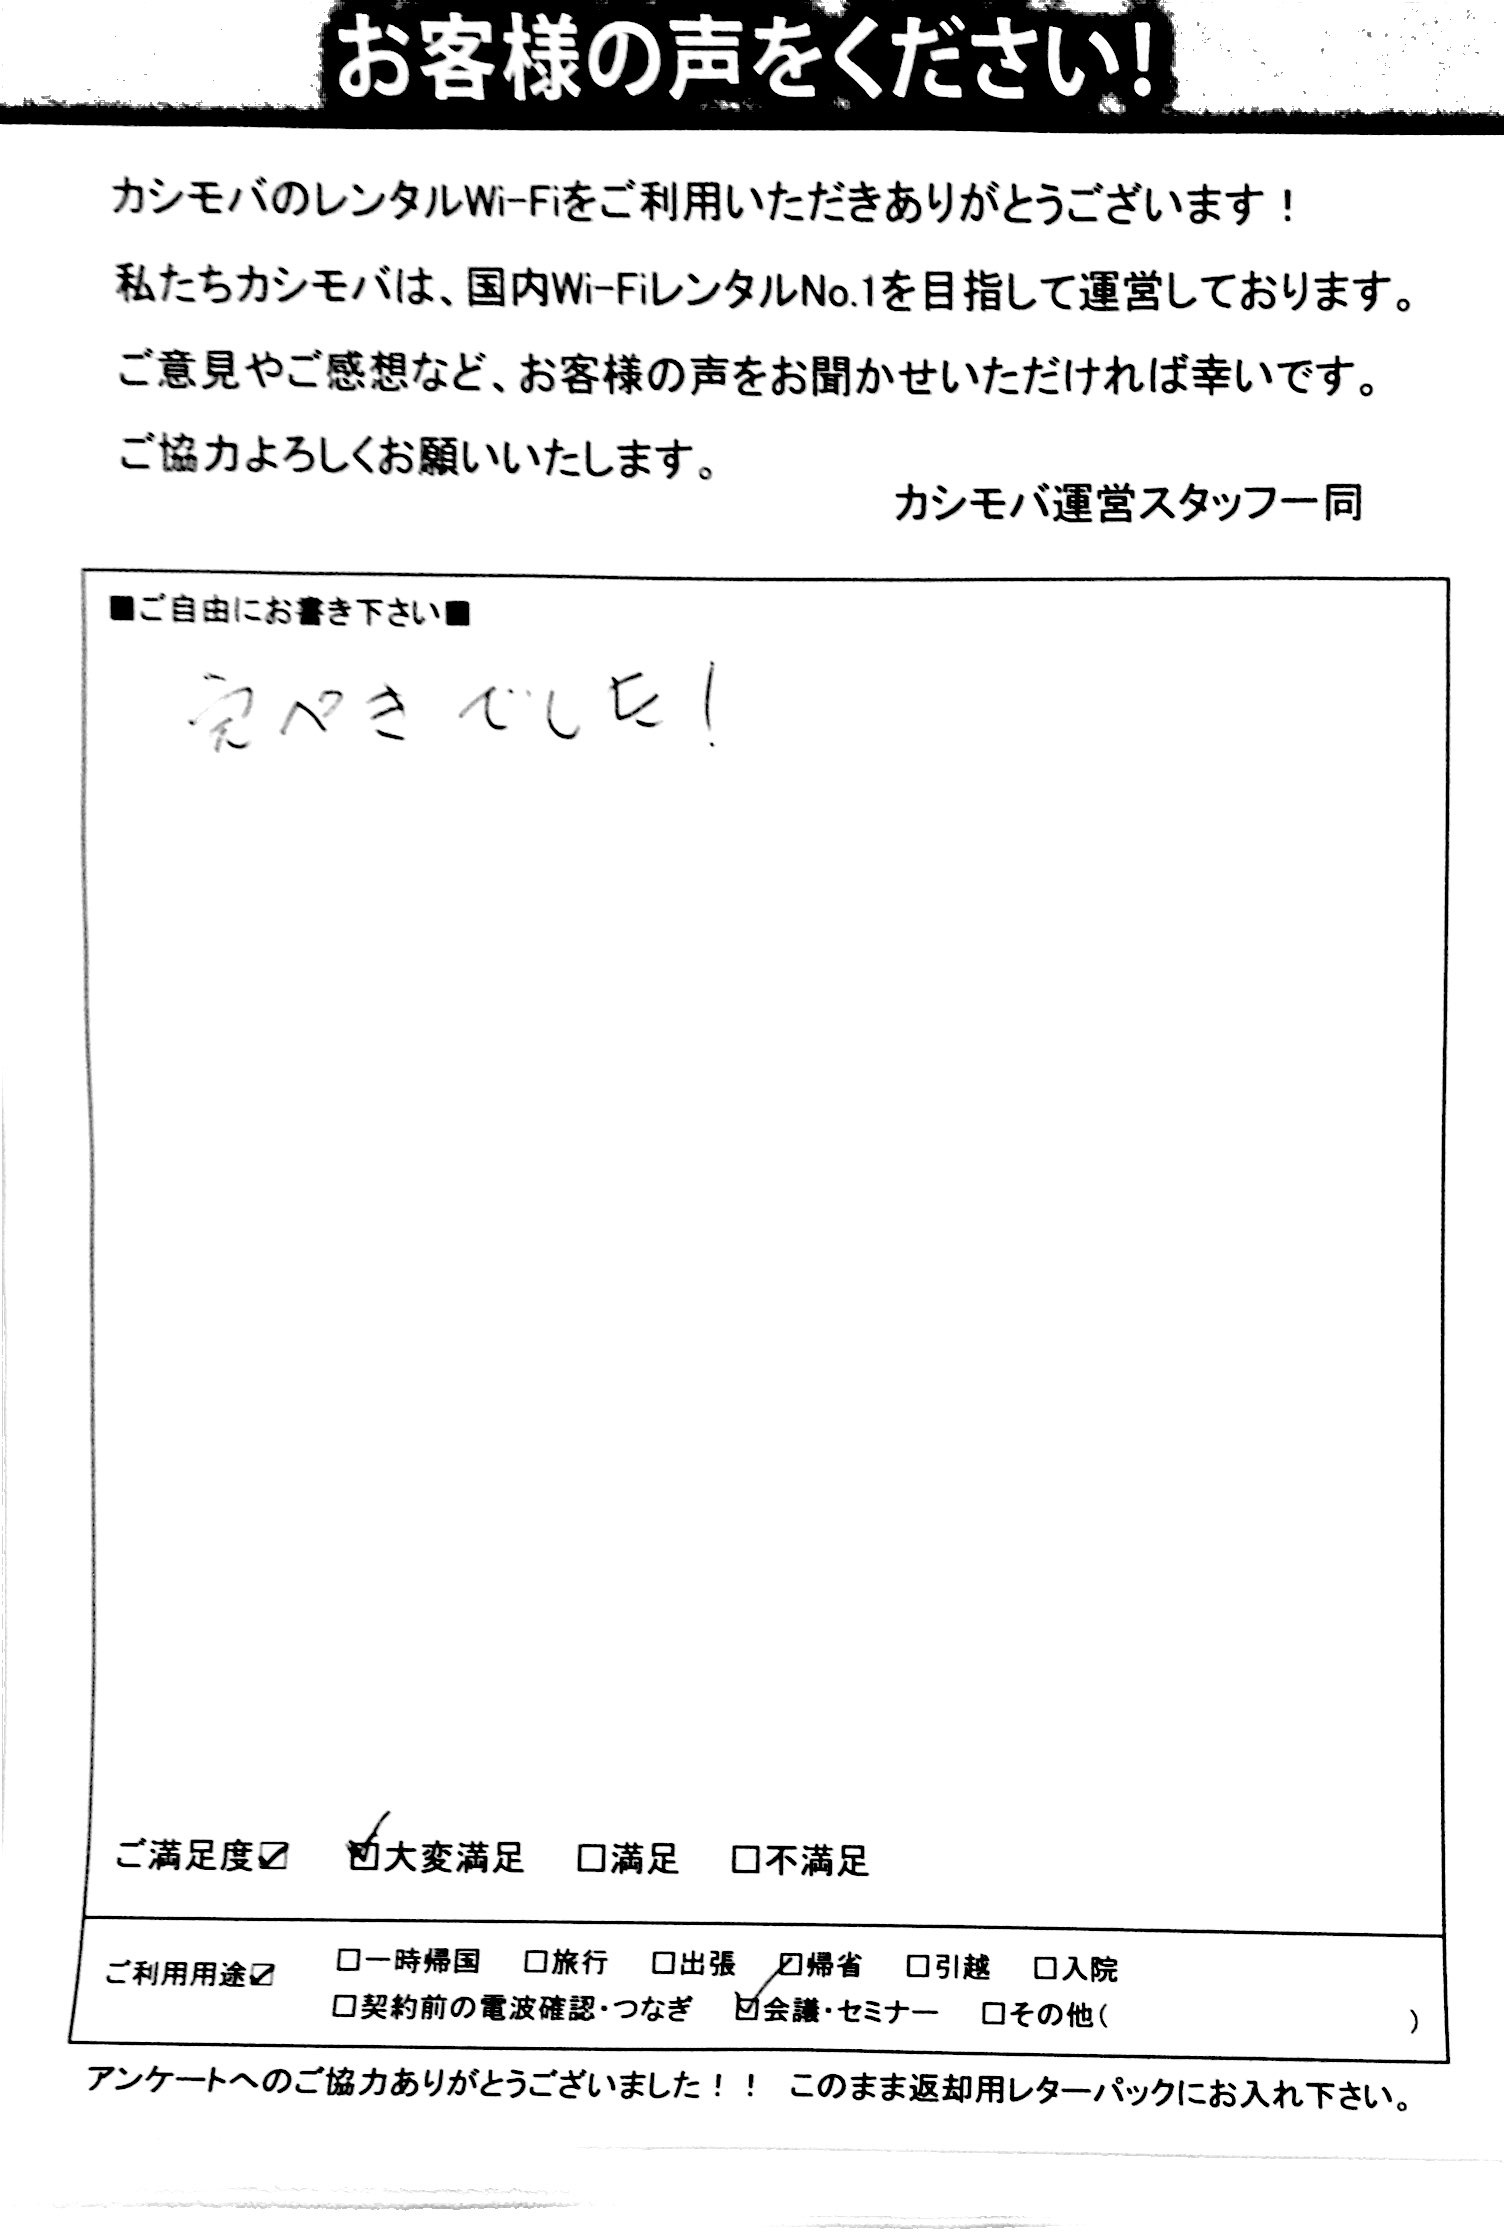 お客様の声をください!
カシモバのレンタルWi-Fiをご利用いただきありがとうございます！
私たちカシモバは、国内Wi-FiレンタルNo.1を目指して運営しております。
ご意見やご感想など、お客様の声をお聞かせいただければ幸いです。
ご協力よろしくお願いいたします。
カシモバ運営スタッフ一同
■ご自由にお書き下さい■
完ぺきでした!
ご満足度☑ ☑大変満足 □満足 □不満足
ご利用用途☑ □一時帰国 □旅行 □出張 □帰省 □引越 □入院
□契約前の電波確認・つなぎ ☑会議・セミナー □その他( )
アンケートへのご協力ありがとうございました！！ このまま返却用レターパックにお入れ下さい。